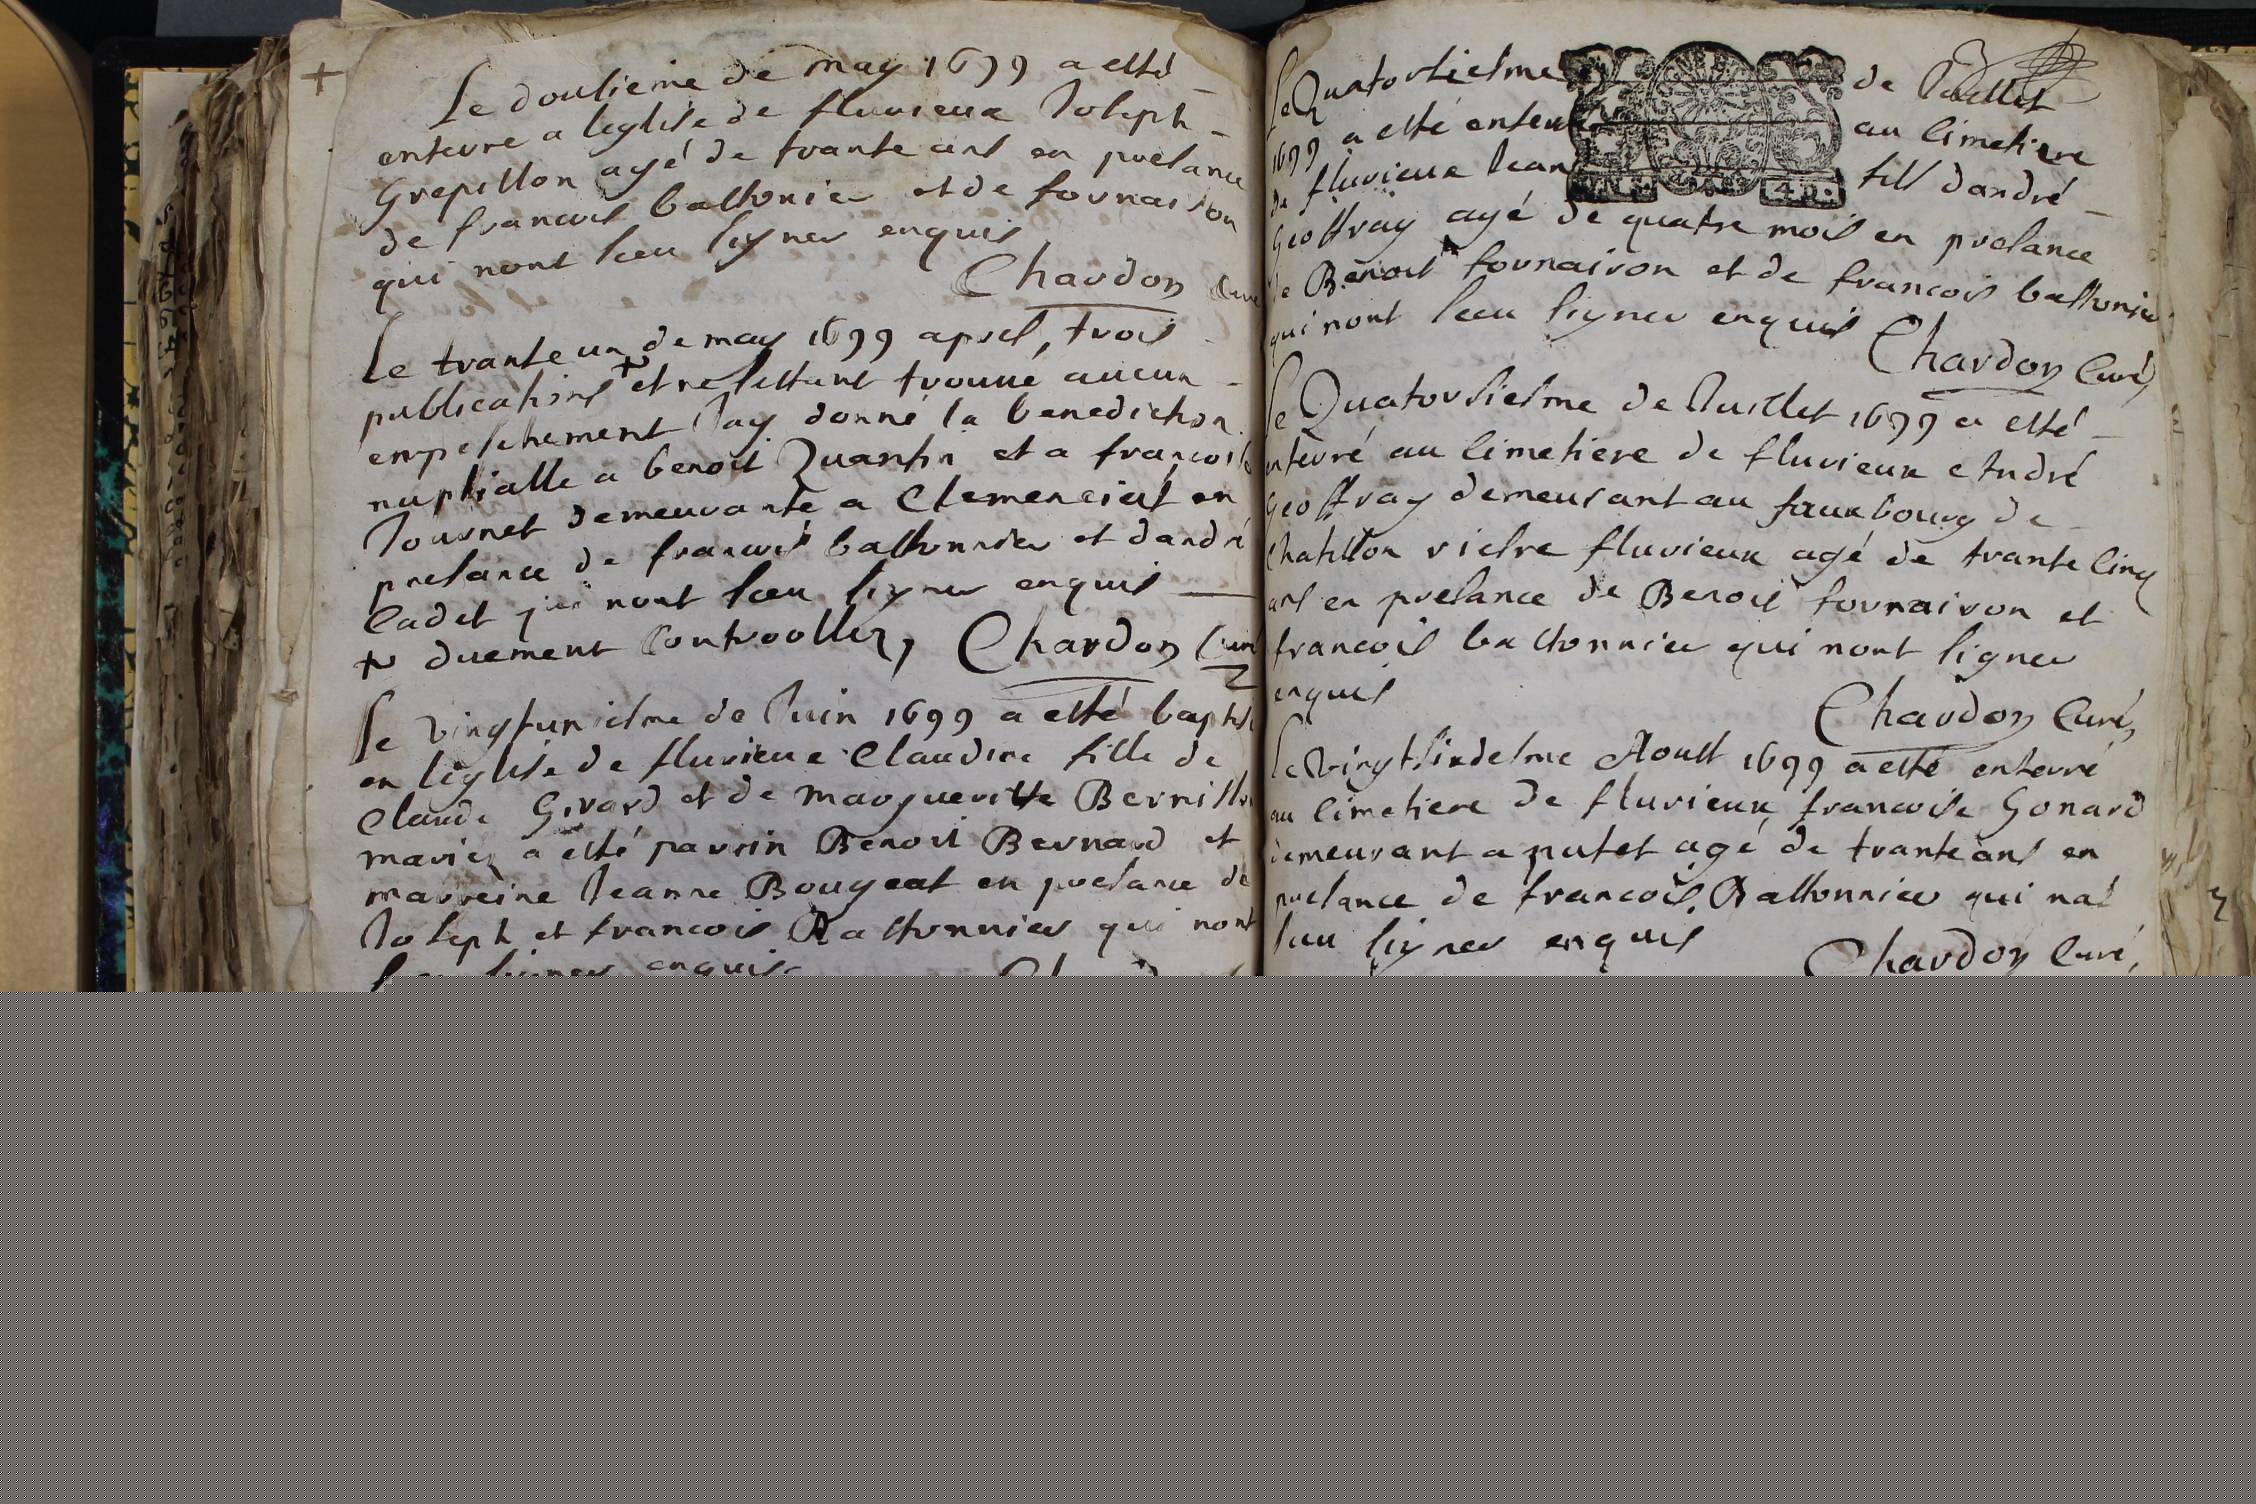 Le dousieme de may 1699 a esté
enterre a leglise de fluvieux Joseph
Grepillon agé de trante ans en presance
de francois bastonier et de fornairon
qui nont sceu signer enquis
Chardon Curé
Le trante un de may 1699 apres, trois
publications et ne sestant trouué aucun
empeschement Jay donné la benediction
nuptialle a benoit Quantin et a francoise
Journet demeurante a Clemenciat en
presance de francois bastonnier et dandré
Cadet qui nont sceu signer enquis
duement Controollez, Chardon Curé
Le vingtuniesme de Juin 1699 a esté baptisé
en leglise de fluvieux Claudine fille de
Claude Girard et de margueritte Bernillon
mariez a esté parrin Benoit Bernard et
marreine Jeanne Bougeat en presance de
Joseph et francois Bastonnier qui nont
sceu signer enquis
Le Quatorsiesme de Juillet
1699 a esté enterré au Cimetiere
de fluvieux Jean fils dandré
Geoffray agé de quatre mois en presance
de Benoit fornairon et de francois bastonier
qui nont sceu signer enquis Chardon Curé,
Le Quatorsiesme de Juillet 1699 a esté
enterré au Cimetiere de fluvieux André
Geoffray demeurant au fauxbourg de
Chatillon riesre fluvieux agé de trante Cinq
ans en presance de Benoit fornairon et
francois bastonnier qui nont signer
enquis
Chardon Curé,
Le vingt sixdesme Aoust 1699 a esté enterré
au Cimetiere de fluvieux francoise Gonard
demeurant a putet agé de trante ans en
presance de francois Bastonnier qui nat
sceu signer enquis
Chardon Curé,